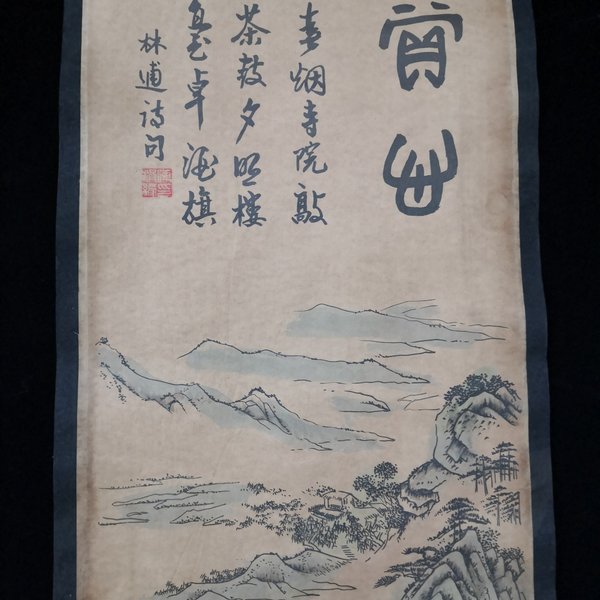 春烟寺院敲
茶鼓夕照楼
台卓酒旗
林逋诗句